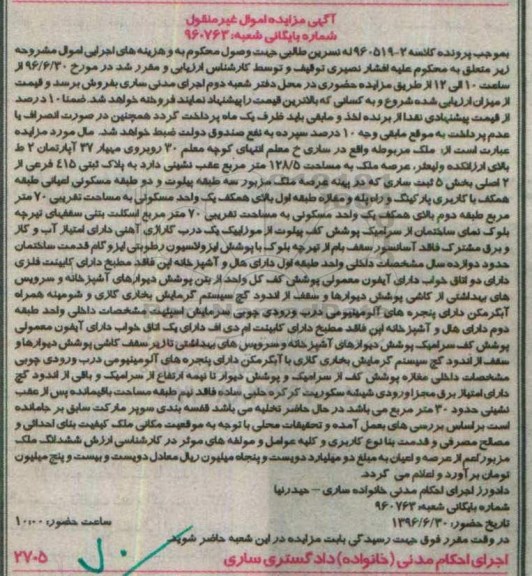 آگهی مزایده اموال غیر منقول
شماره بایگانی شعبه: ۹۶۰۷۶۳
بموجب پرونده کلاسه ۲-۹۶۰۵۱۹ له نسرین طالبی جهت وصول محکوم به و هزینه های اجرایی اموال مشروحه
زیر متعلق به محکوم علیه افشار نصیری توقیف و توسط کارشناس ارزیابی و مقرر شد در مورخ ۹۶/۶/۳۰ از
ساعت ۱۰ الی ۱۲ از طریق مزایده حضوری در محل دفتر شعبه دوم اجرای مدنی ساری بفروش برسد و قیمت
از میزان ارزیابی شده شروع و به کسانی که بالاترین قیمت را پیشنهاد نمایند فروخته خواهد شد. ضمنا ۱۰ درصد
از قیمت پیشنهادی نقدا از برنده اخذ و مابقی باید ظرف یک ماه پرداخت گردد همچنین در صورت انصراف یا
عدم پرداخت به موقع مابقی وجه ۱۰ درصد سپرده به نفع صندوق دولت ضبط خواهد شد. مال مورد مزایده
عبارت است از: ملک مربوطه واقع در ساری خ معلم انتهای کوچه معلم ۳۰ روبروی مهیار ۳۷ آپارتمان ۲ ط
بالای ارزانکده ولیعصر، عرصه ملک به مساحت ۱۲۸/۵ متر مربع عقب نشینی دارد به پلاک ثبتی ۴۱۵ فرعی از
۲ اصلی بخش ۵ ثبت ساری که در پهنه عرصه ملک مزبور سه طبقه پیلوت و دو طبقه مسکونی اعیانی طبقه
همکف با کاربری پارکینگ و راه پله و مغازه طبقه اول بالای همکف یک واحد مسکونی به مساحت تقریبی ۷۰ متر
مربع طبقه دوم بالای همکف یک واحد مسکونی به مساحت تقریبی ۷۰ متر مربع اسکلت بتنی سقفهای تیرچه
بلوک نمای ساختمان از سرامیک پوشش کف پیلوت از موزاییک یک درب گاراژی آهنی دارای امتیاز آب و گاز
و برق مشترک فاقد آسانسور سقف بام از تیرچه بلوک با پوشش ایزولاسیون رطوبتی ایزوگام قدمت ساختمان
حدود دوازده سال مشخصات داخلی واحد طبقه اول دارای هال و آشپزخانه اپن فاقد مطبخ دارای کابینت فلزی
دارای دو اتاق خواب دارای آیفون معمولی پوشش کف کل واحد از بتن پوشش دیوارهای آشپزخانه و سرویس
های بهداشتی از کاشی پوشش دیوارها و سقف از اندود گچ سیستم گرمایش بخاری گازی و شومینه همراه
آبگرمکن دارای پنجره های آلومینیومی درب ورودی چوبی سرمایش اسپلیت مشخصات داخلی واحد طبقه
دوم دارای هال و آشپزخانه اپن فاقد مطبخ دارای کابینت ام دی اف دارای یک اتاق خواب دارای آیفون معمولی
پوشش کف سرامیک پوشش دیوارهای آشپزخانه و سرویس های بهداشتی تا زیر سقف کاشی پوشش دیوارها و
سقف از اندود گچ سیستم گرمایش بخاری گازی با آبگرمکن دارای پنجره های آلومینیومی درب ورودی چوبی
مشخصات داخلی مغازه پوشش کف از سرامیک و پوشش دیوار تا نیمه ارتفاع از سرامیک و باقی از اندود گچ
دارای امتیاز برق مجزا ورودی شیشه سکوریت کرکره حلبی ساده فاقد نیم طبقه مساحت باقیمانده پس از عقب
نشینی حدود ۳۰ متر مربع می باشد در حال حاضر تخلیه می باشد قفسه بندی سوپر مارکت سابق بر جا مانده
است بر اساس بررسی های بعمل آمده و تحقیقات محلی با توجه به موقعیت مکانی ملک کیفیت بنای احداثی و
مصالح مصرفی و قدمت بنا نوع کاربری و کلیه عوامل و مولفه های موثر در کارشناسی ارزش ششدانگ ملک
مزبور اعم از عرصه و اعیان به مبلغ دو میلیارد دویست و پنجاه میلیون ریال معادل دویست و بیست و پنج میلیون
تومان برآورد و اعلام می گردد.
دادورز اجرای احکام مدنی خانواده ساری – حیدرنیا
شماره بایگانی شعبه: ۹۶۰۷۶۳
تاریخ حضور: ۱۳۹۶/۶/۳۰ ساعت حضور: ۱۰:۰۰
در وقت مقرر فوق جهت رسیدگی بابت مزایده در این شعبه حاضر شوید.
اجرای احکام مدنی (خانواده) دادگستری ساری ۲۷۰۵